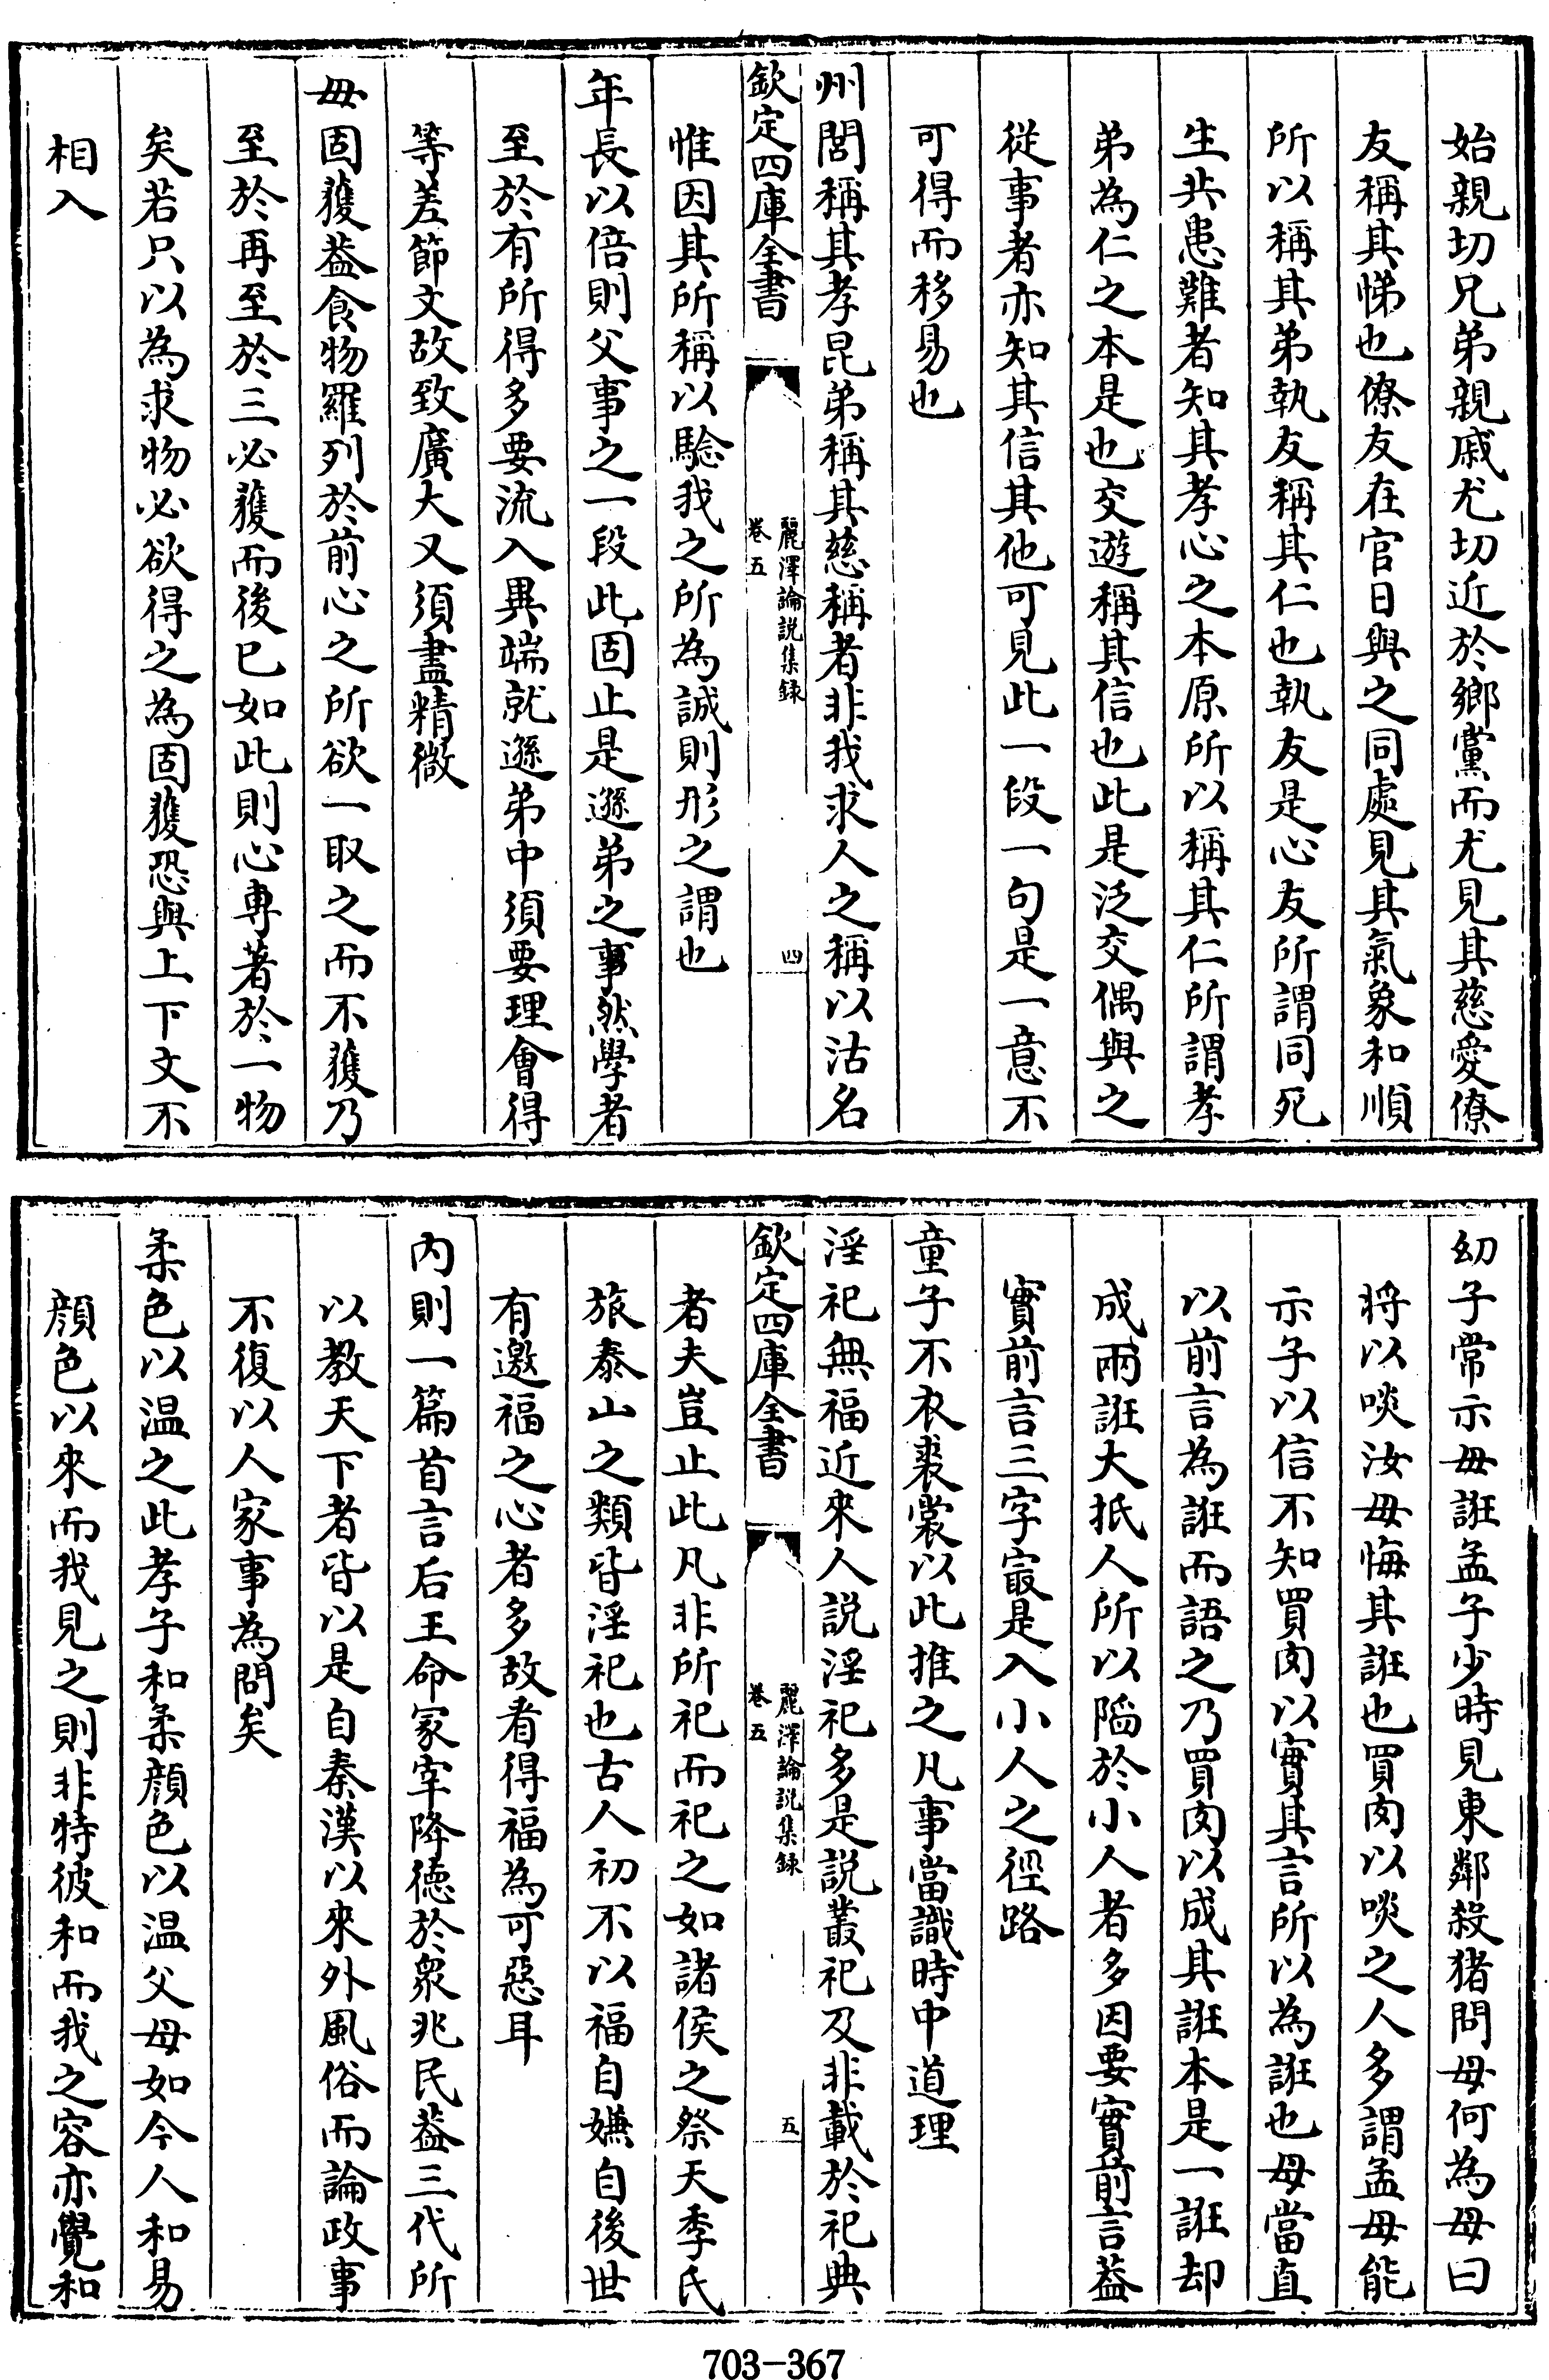 始親切兄弟親戚尤切近於鄉黨而尤見其慈愛僚
友稱其悌也僚友在官日與之同處見其氣象和順
所以稱其弟執友稱其仁也執友是心友所謂同死
生共患難者知其孝心之本原所以稱其仁所謂孝
弟為仁之本是也交遊稱其信也此是泛交偶與之
從事者亦知其信其他可見此一段一句是一意不
可得而移易也
州閭稱其孝昆弟稱其慈稱者非我求人之稱以沽名
欽定四庫全書
麗澤論說集録
卷五
四
惟因其所稱以驗我之所為誠則形之謂也
年長以倍則父事之一段此固止是遜弟之事然學者
至於有所得多要流入異端就遜弟中須要理會得
等差節文故致廣大又須盡精微
毋固獲葢食物羅列於前心之所欲一取之而不獲乃
至於再至於三必獲而後已如此則心專著於一物
矣若只以為求物必欲得之為固獲恐與上下文不
相入
幼子常示毋誑孟子少時見東鄰殺猪問母何為母曰
將以啖汝母悔其誑也買肉以啖之人多謂孟母能
示子以信不知買肉以實其言所以為誑也母當直
以前言為誑而語之乃買肉以成其誑本是一誑却
成兩誑大抵人所以陷於小人者多因要實前言葢
實前言三字寂是入小人之徑路
童子不衣裘裳以此推之凡事當識時中道理
淫祀無福近來人說淫祀多是説叢祀及非載於祀典
欽定四庫全書
麗澤論説集録
卷五
五
者夫豈止此凡非所祀而祀之如諸侯之祭天季氏
旅泰山之類皆淫祀也古人初不以福自嫌自後世
有邀福之心者多故看得福為可惡耳
内則一篇首言后王命冢宰降德於衆兆民葢三代所
以教天下者皆以是自秦漢以來外風俗而論政事
不復以人家事為問矣
柔色以温之此孝子和柔顔色以温父母如今人和易
顔色以來而我見之則非特彼和而我之容亦覺和
703-367